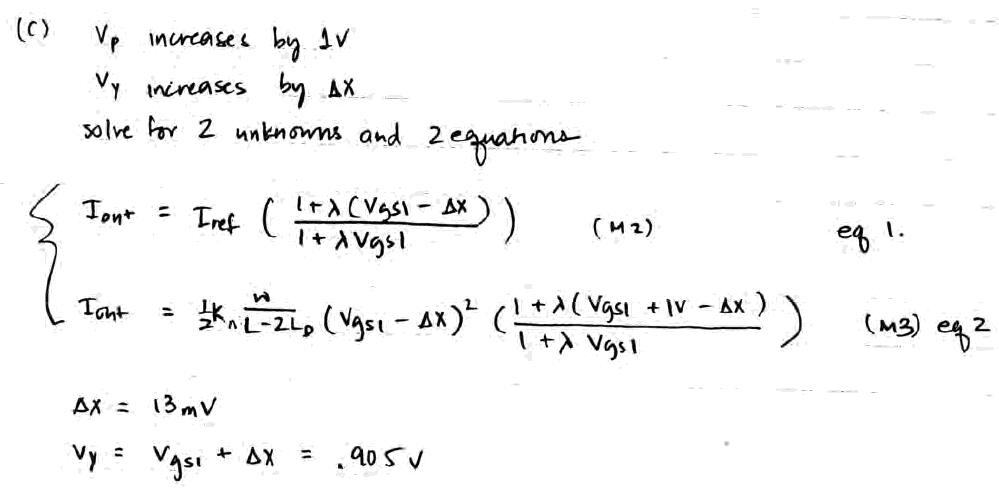 (C) Vp increases by 1V
Vy increases by ΔX
solve for 2 unknowns and 2 equations
Iout = Iref ( (1+λ(Vgs1 - ΔX)) / (1+λVgs1) ) (M2) eq 1.
Iout = ½Kn W/(L-2LD) (Vgs1 - ΔX)² ( (1+λ(Vgs1 + 1V - ΔX)) / (1+λ Vgs1) ) (M3) eq 2
ΔX = 13mV
Vy = Vgs1 + ΔX = .905V